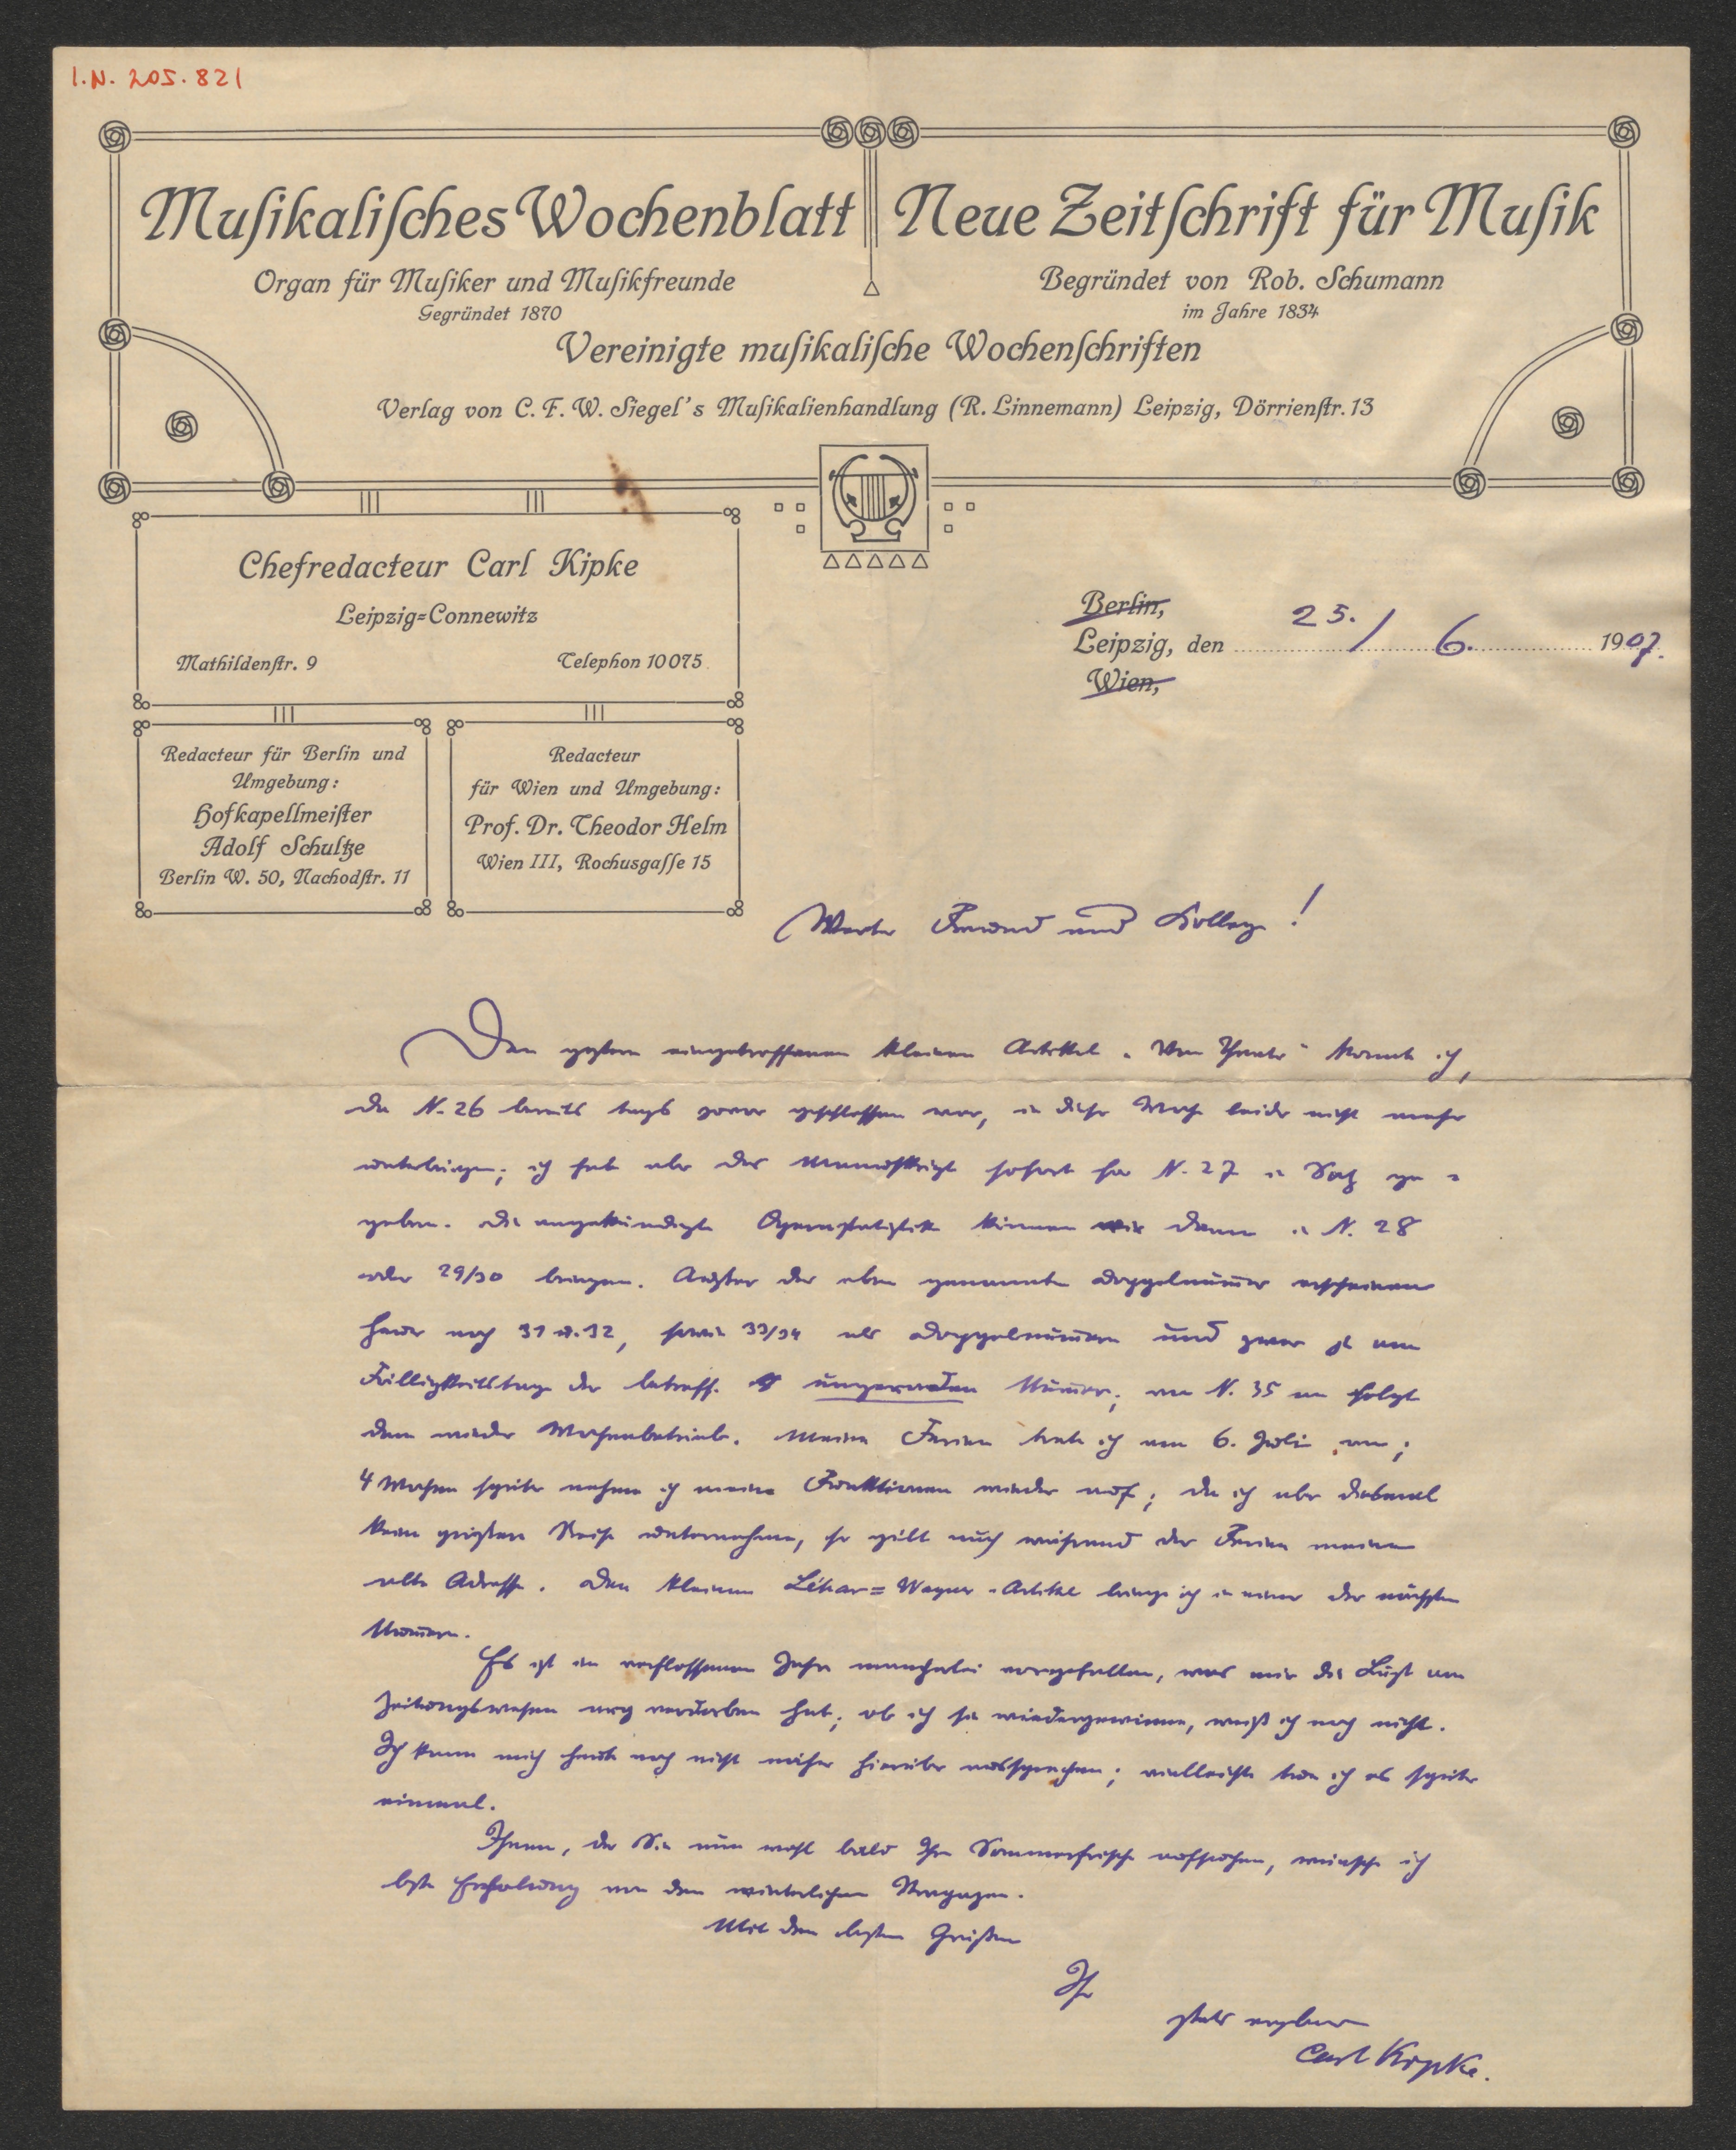 I.N. 205.821
Musikalisches Wochenblatt
Organ für Musiker und Musikfreunde
Gegründet 1870
Neue Zeitschrift für Musik
Begründet von Rob. Schumann
im Jahre 1834
Vereinigte musikalische Wochenschriften
Verlag von C. F. W. Siegel's Musikalienhandlung (R. Linnemann) Leipzig, Dörrienstr. 13
Chefredacteur Carl Kipke
Leipzig-Connewitz
Mathildenstr. 9 Telephon 10075
Redacteur für Berlin und
Umgebung:
Hofkapellmeister
Adolf Schultze
Berlin W. 50, Nachodstr. 11
Redacteur
für Wien und Umgebung:
Prof. Dr. Theodor Helm
Wien III, Rochusgasse 15
Berlin,
Leipzig, den 25./6. 1907.
Wien,
Werter Freund und Kollege!
Den gestern eingetroffenen kleinen Artikel „Vom Theater" konnte ich,
da N. 26 bereits tags zuvor geschlossen war, in dieser Woche leider nicht mehr
unterbringen; ich habe aber das Manuskript sofort für N. 27 in Satz ge-
geben. Die angekündigte Opernstatistik können wir dann in N. 28
oder 29/30 bringen. Außer der eben genannten Doppelnummer erscheinen
heuer noch 31 u. 32, sowie 33/34 als Doppelnummern und zwar je am
Fälligkeitstage der betreff. ungeraden Nummer; von N. 35 an folgt
dann wieder Wochenbetrieb. Meine Ferien trete ich am 6. Juli an;
4 Wochen später nehme ich meine Funktionen wieder auf; da ich aber diesmal
keine größere Reise unternehme, so gilt auch während der Ferien meine
alte Adresse. Den kleinen Léhar-Wagner-Artikel bringe ich in einer der nächsten
Nummern.
Es ist im verflossenen Jahre mancherlei vorgefallen, was mir die Lust am
Zeitungswesen arg verdorben hat; ob ich sie wiedergewinne, weiß ich noch nicht.
Ich kann mich heute noch nicht näher hierüber aussprechen; vielleicht tue ich es später
einmal.
Ihnen, der Sie nun wohl bald Ihre Sommerfrische aufsuchen, wünsche ich
beste Erholung von den winterlichen Strapazen.
Mit den besten Grüßen
Ihr
stets ergebener
Carl Kipke.